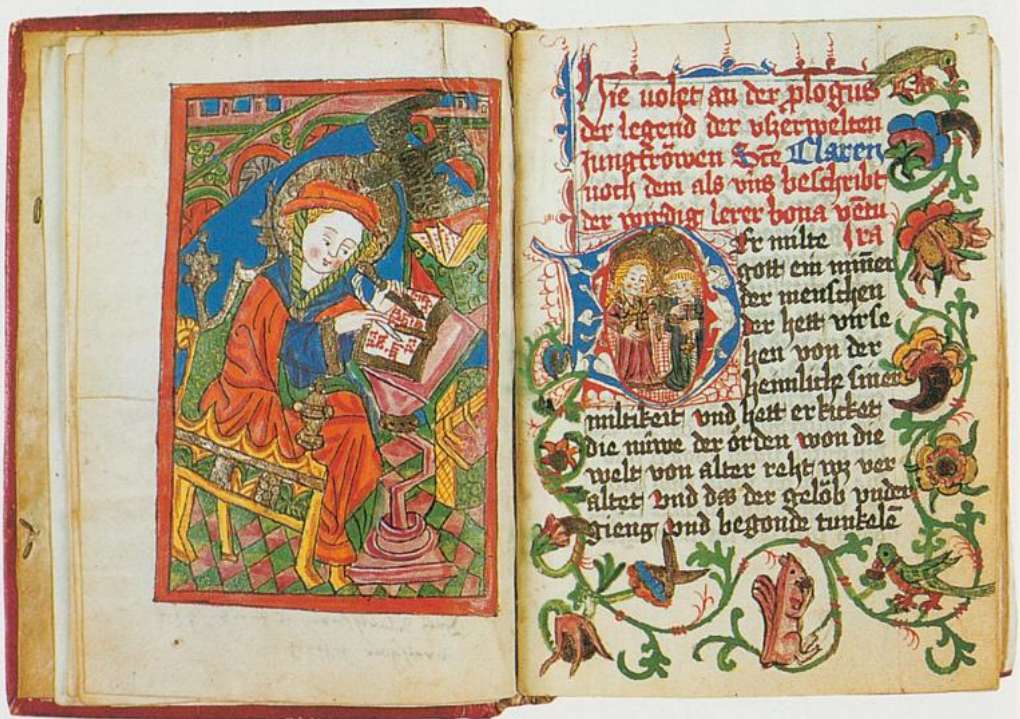 Hie volget an der plogus
der legend der vsserwelten
Jungfröwen Scte Claren
noch dem als vns beschribt
der wirdig lerer bona ventu
ra
Er milte
gott ein minner
der menschen
der hett virse
hen von der
heimlichi siner
miltikeit vnd hett erkicket
die nüwe der örden won die
welt von alter reht wz ver
altet vnd das der gelöb vnder
gieng vnd begonde tunkelē